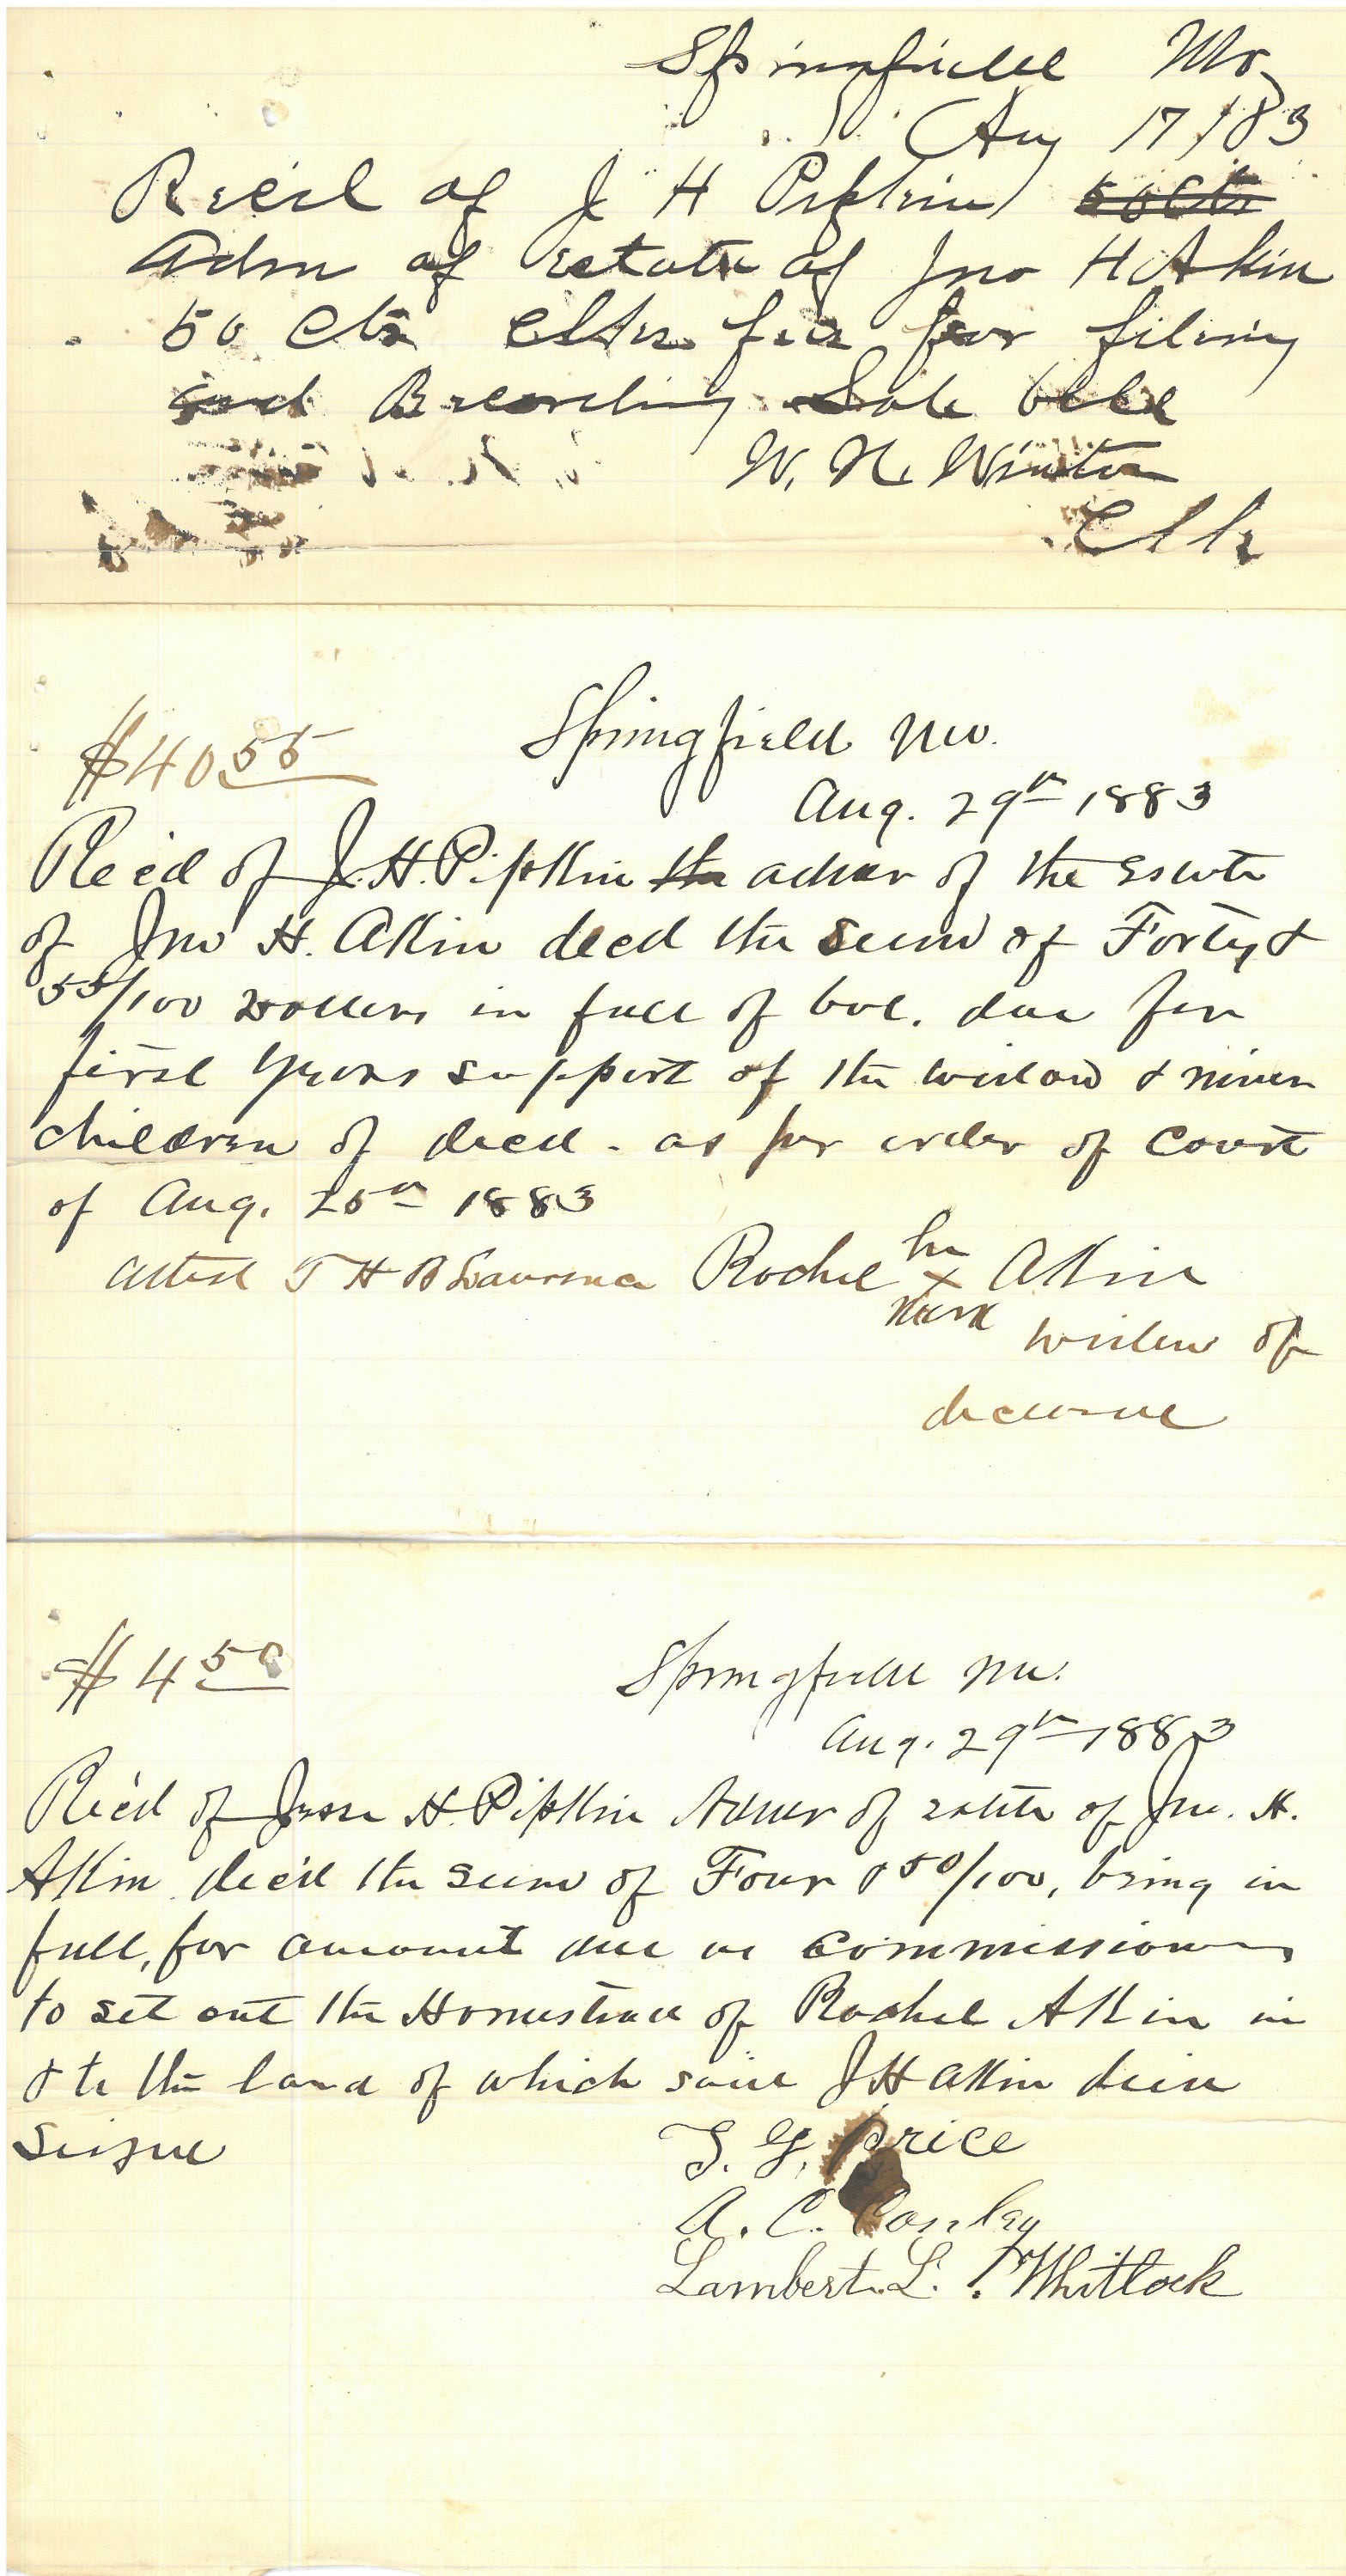 Springfield Mo
Aug 17 / 83
Recd of J H Pipkin 50 Cts
Adm of estate of Jno H Akin
50 Cts Clks fee for filing
and Recording Sale bill
W. N.
Clk
$40 55
Springfield Mo.
Aug. 29th 1883
Rec'd of J. H. Pipkin the admr of the Estate
of Jno H. Akin decd the sum of Forty &
55/100 Dollars in full of bal. due for
first years support of the widow & minor
children of decd - as per order of Court
of Aug. 25th 1883
Attest T H B Lawrence Rachel her x mark Akin
widow of
deceased
$4 50
Springfield Mo.
Aug. 29th 1883
Rec'd of Jesse H. Pipkin Admr of estate of Jno. H.
Akin dec'd the sum of Four & 50/100, being in
full, for amount due as commissioners
to set out the Homestead of Rachel Akin in
& to the land of which said J H Akin died
Seized
G. Price
A. C. Conley
Lambert L. Whitlock